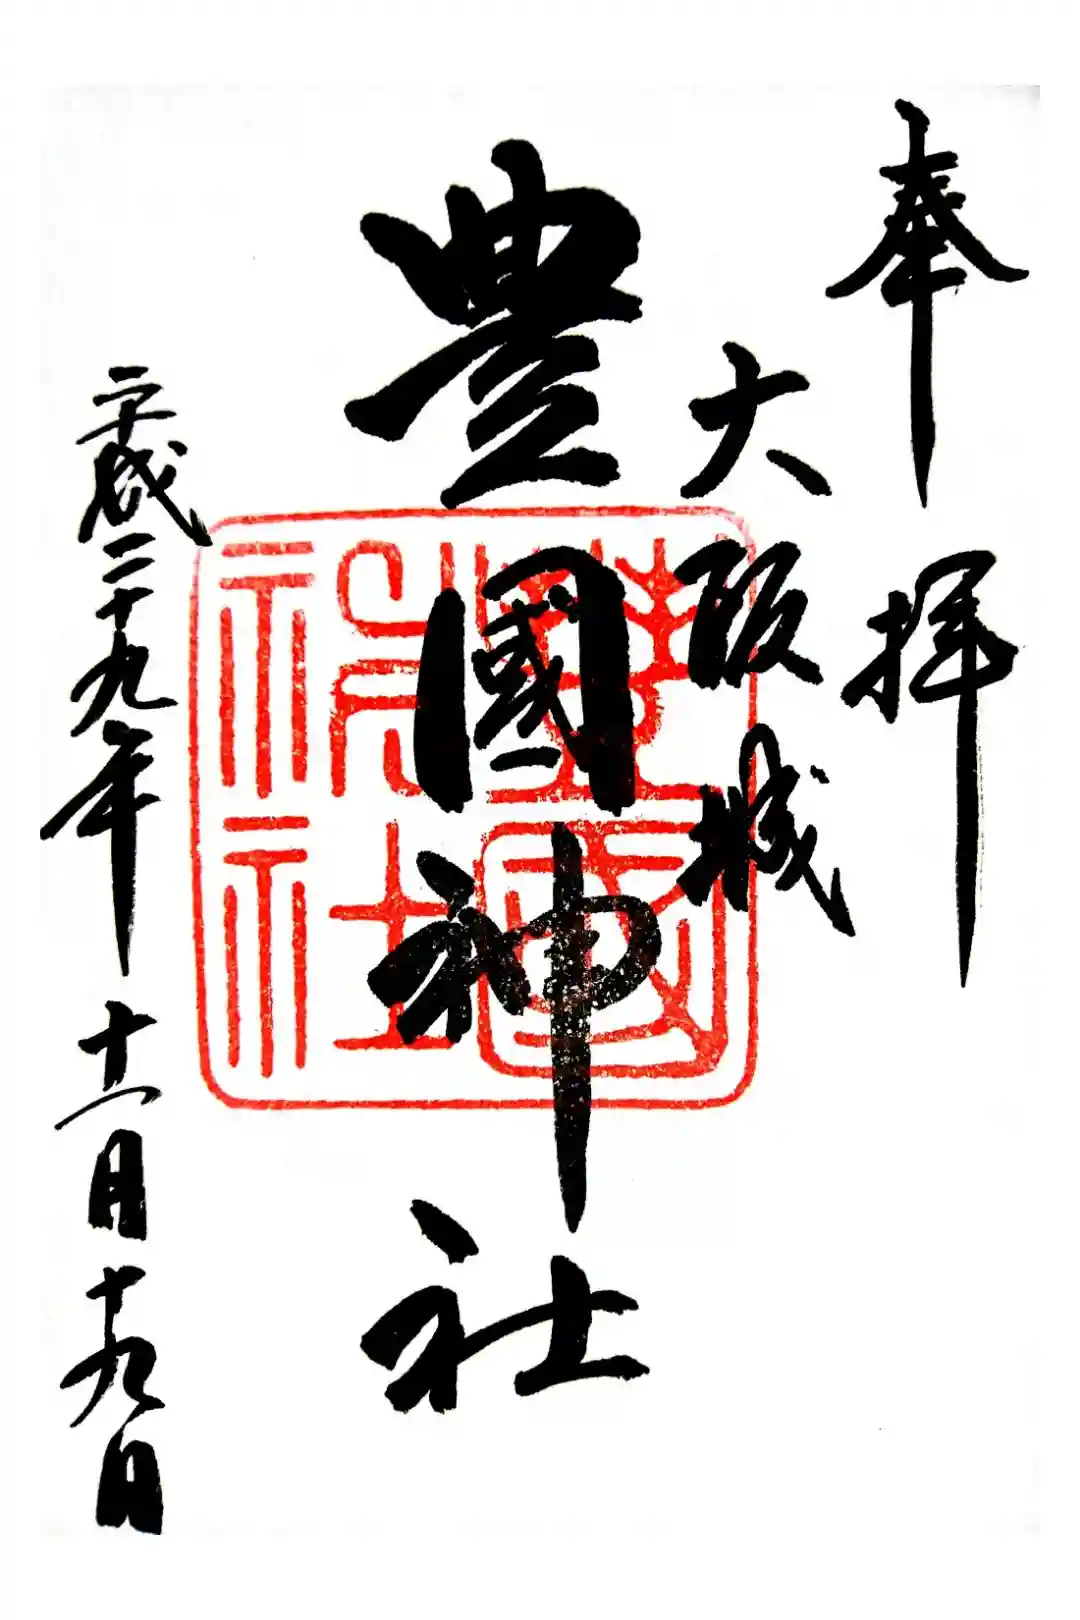 奉拝
大阪城
豊國神社
豊國神社
平成二十九年十二月十九日